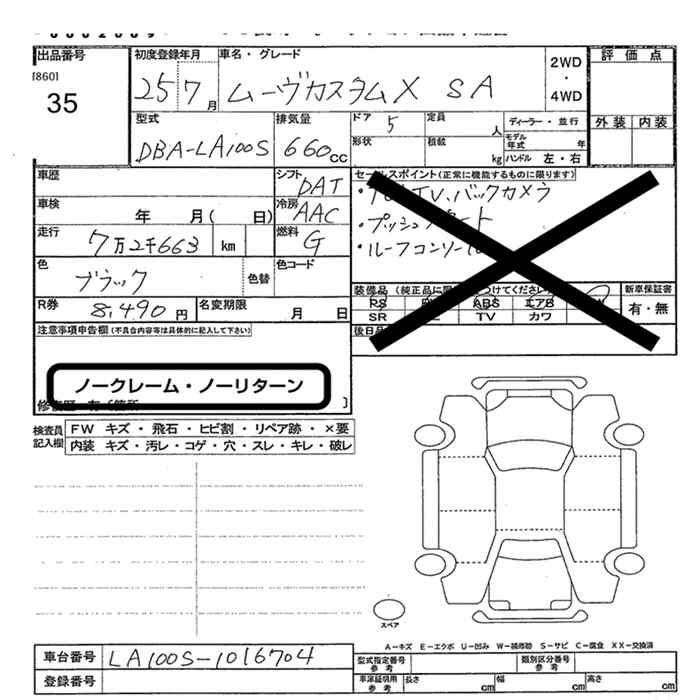 出品番号
[860]
35
初度登録年月
25 7月
車名・グレード
ムーヴカスタムX SA
2WD
・
4WD
評価点
型式
DBA-LA100S
排気量
660cc
ドア 5
定員 人
ディーラー・並行
形状
積載 kg
モデル年式 年
ハンドル 左・右
外装 内装
車歴
シフト DAT
セールスポイント(正常に機能するものに限ります)
車検 年 月( 日)
冷房 AAC
・TV、バックカメラ
走行 7万2千663 km
燃料 G
・プッシュスタート
・ルーフコンソール
色 ブラック
色替
色コード
装備品
新車保証書
R券 8,490円
名変期限 月 日
PS ABS エアB
SR TV カワ
有・無
注意事項申告欄(不具合内容等は具体的に記入して下さい)
後日品
ノークレーム・ノーリターン
検査員記入欄
FW キズ・飛石・ヒビ割・リペア跡・×要
内装 キズ・汚レ・コゲ・穴・スレ・キレ・破レ
スペア
A-キズ E-エクボ U-凹み W-補修跡 S-サビ C-腐食 XX-交換済
車台番号 LA100S-1016704
登録番号
型式指定番号 参考
類別区分番号 参考
車庫証明用 参考 長さ cm 幅 cm 高さ cm